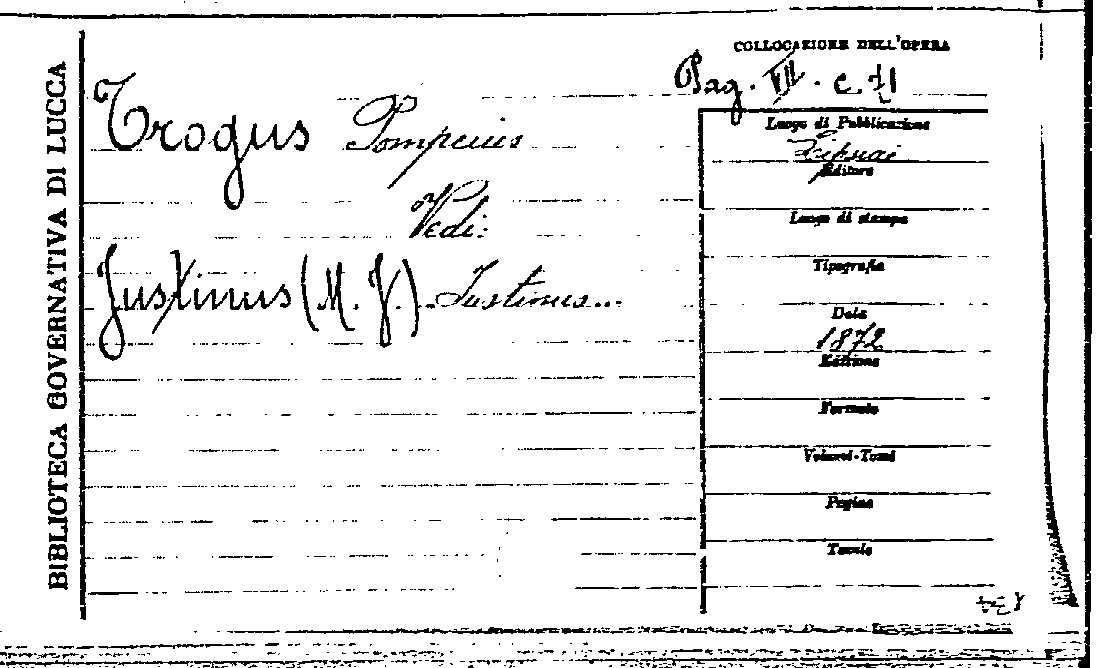 BIBLIOTECA GOVERNATIVA DI LUCCA
COLLOCAZIONE DELL'OPERA
Pag. VII. c.
Trogus Pompeius
Vedi:
Justinus (M. J.). Justinus...
Luogo di Pubblicazione
Lipsiai
Editore
Luogo di stampa
Tipografia
Data
1872
Edizione
Formato
Volumi-Tomi
Pagine
Tavole